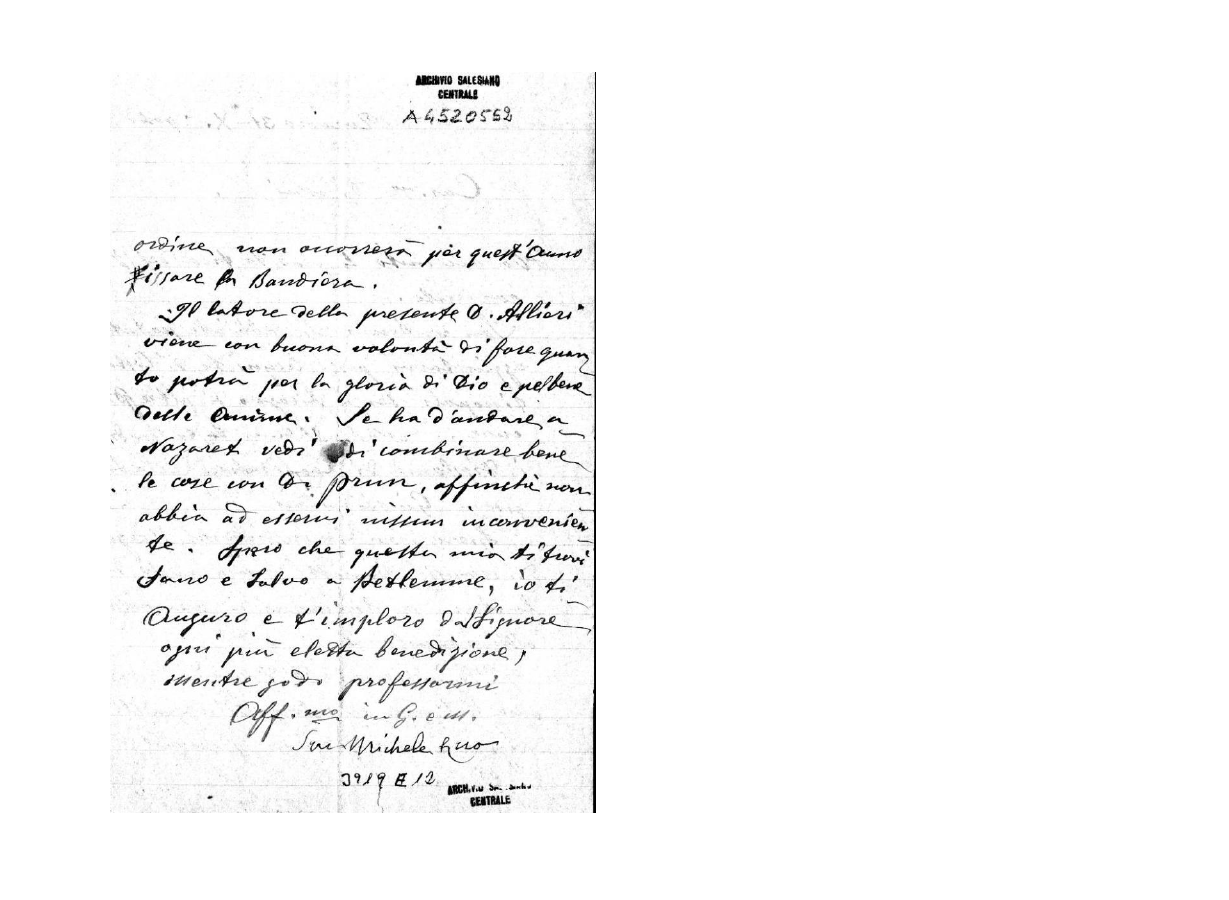 ARCHIVIO SALESIANO
CENTRALE
A4520552
ordine non occorrerà per quest'Anno
fissare la Bandiera.
Il latore della presente D. Allieri
viene con buona volontà di fare quan
to potrà per la gloria di Dio e pel bene
delle Anime. Se ha d'andare a
Nazaret vedi di combinare bene
le cose con D. Prun, affinchè non
abbia ad esservi nissun inconvenien
te. Spero che questa mia ti trovi
Sano e Salvo a Betlemme, io ti
Auguro e t'imploro dal Signore
ogni più eletta benedizione,
mentre godo professarmi
Aff.mo in G. e M.
Sac Michele Rua
3919 E 12
ARCHIVIO SALESIANO
CENTRALE